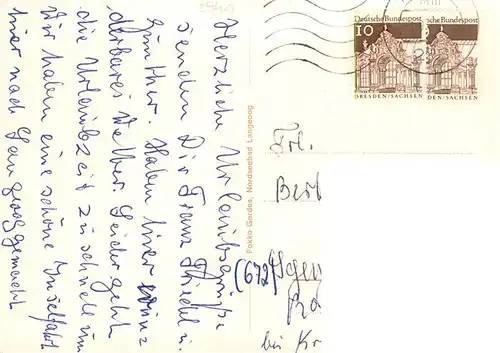 Herzliche Urlaubsgrüße
senden Dir Franz Friedel u.
Günther. Haben hier wun-
derbares Wetter. Leider geht
die Urlaubszeit zu schnell um
Wir haben eine schöne Inselfahrt
hier nach Langeoog gemacht
Fokko Gerdes, Nordseebad Langeoog
Deutsche Bundespost
10
DRESDEN/SACHSEN
Deutsche Bundespost
DEN/SACHSEN
Frl.
Berb
(672)
bei Kr